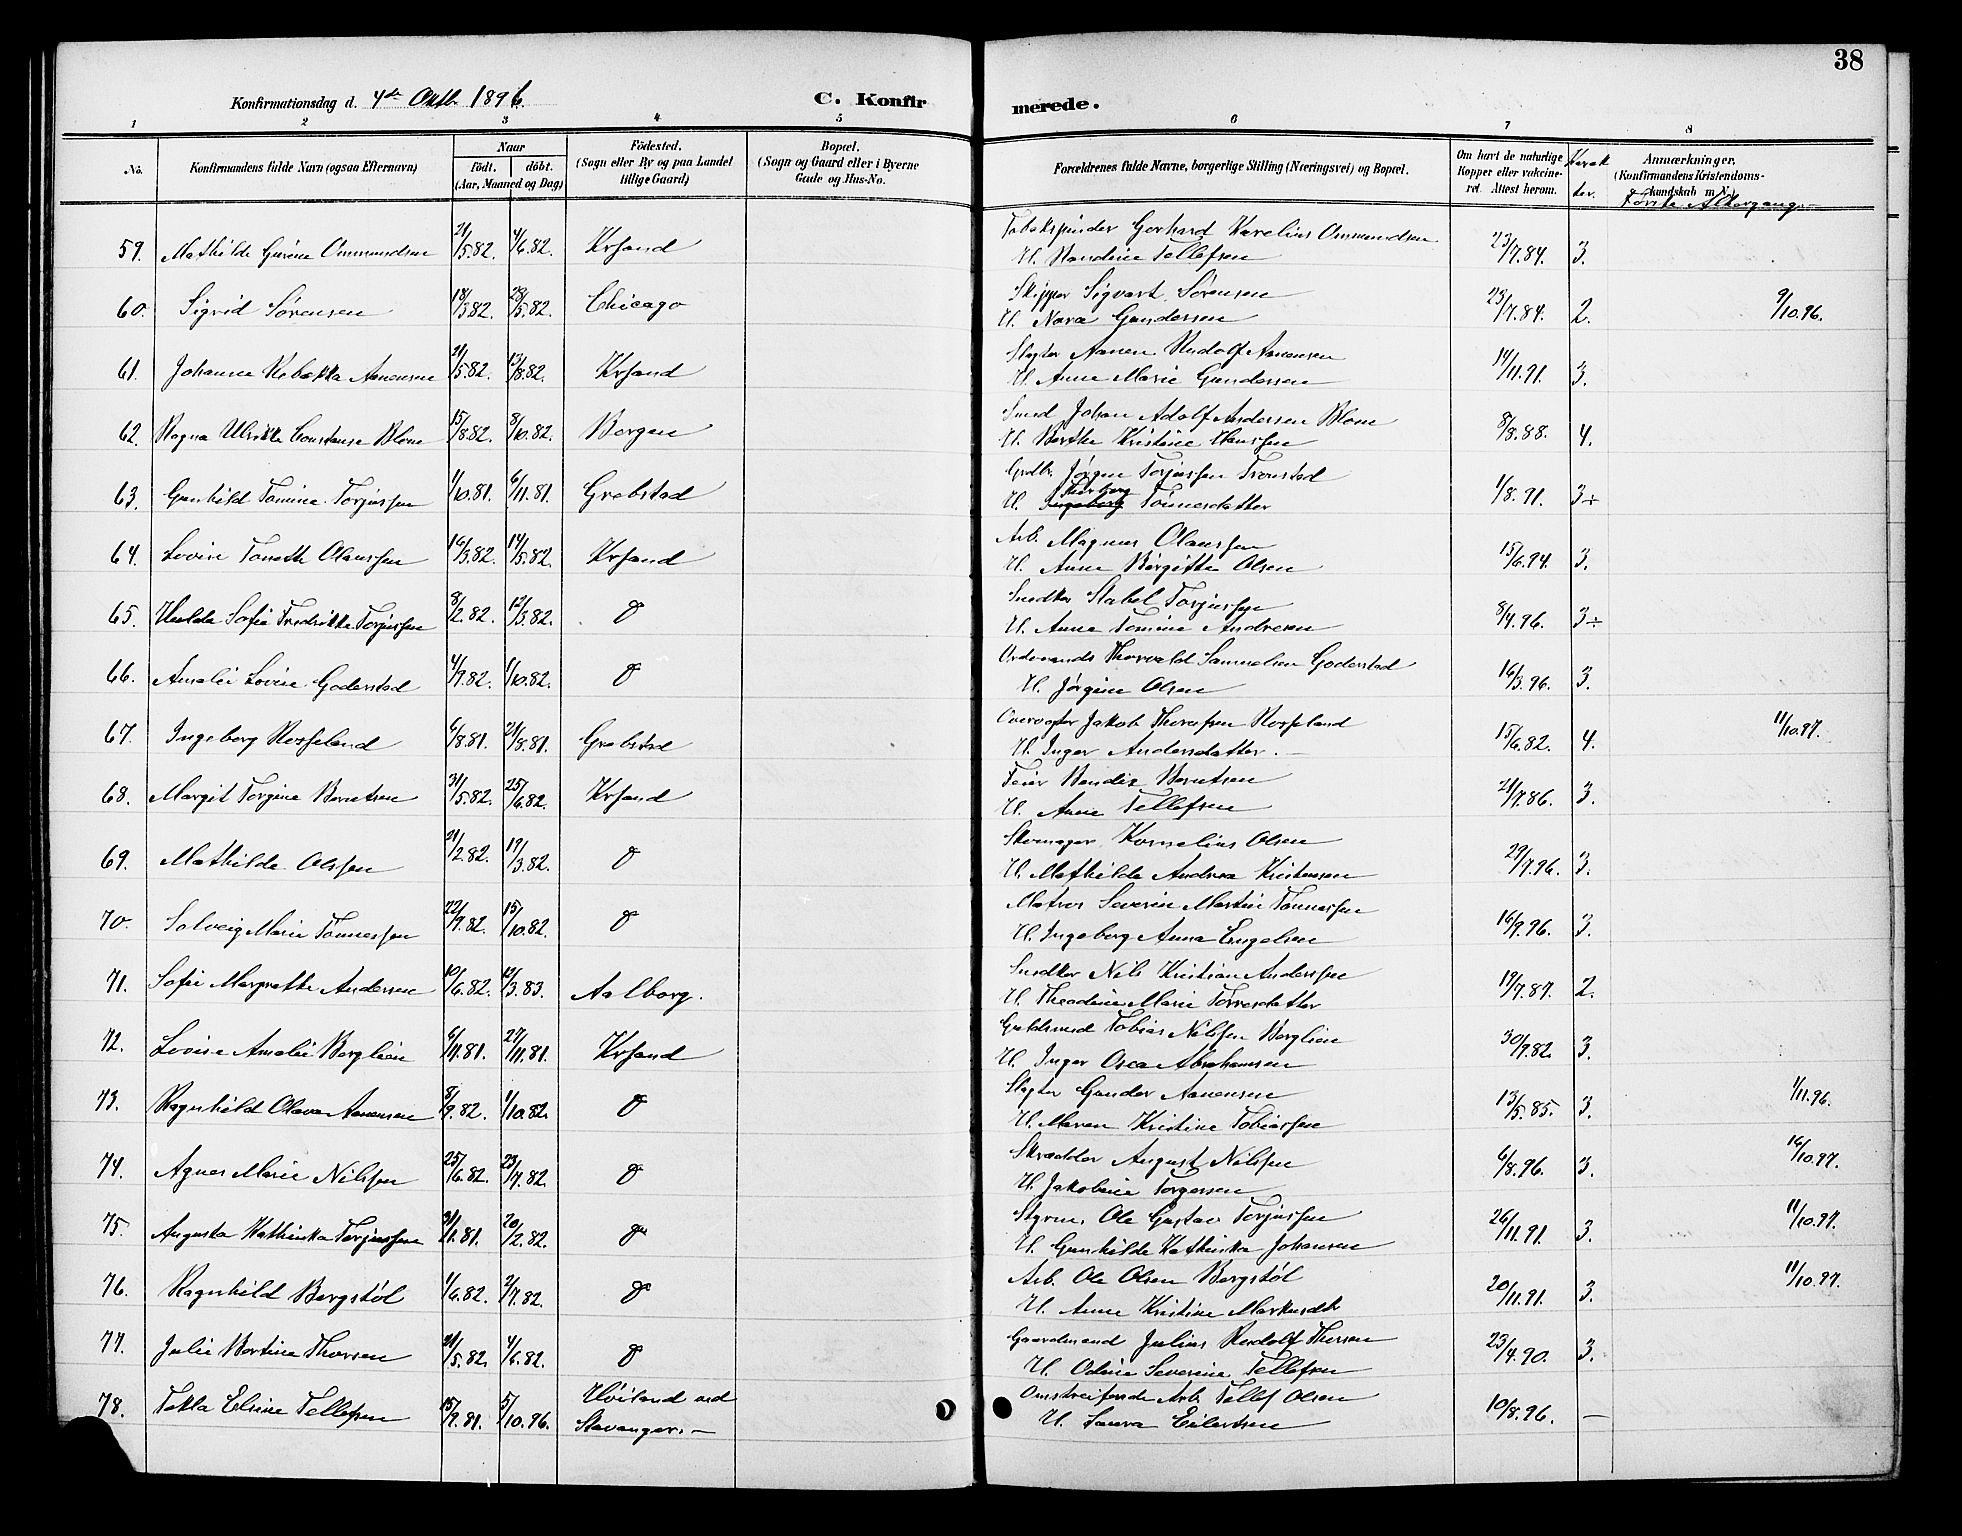 38
Konfirmationsdag d. 4de Oktb. 1896.
C. Konfirmerede.
1 2 3 4 5 6 7 8
No. Konfirmandens fulde Navn (ogsaa Efternavn) Naar Födt. döbt. (Aar, Maaned og Dag) Födested. (Sogn eller By og paa Landet tillige Gaard) Bopæl. (Sogn og Gaard eller i Byerne Gade og Hus-No. Forældrenes fulde Navne, borgerlige Stilling (Næringsvei) og Bopæl. Om havt de naturlige Kopper eller vakcineret. Attest herom. Karakter. Anmærkninger. (Konfirmandens Kristendomskundskab m. V.) Første Altergang.
59. Mathilde Gurine Ommundsen 21/5.82. 4/6.82. Krsand Tobakspinder Gerhard Karelius Ommundsen 23/7.84. 3.
H. Nandine Tellefsen
60. Sigrid Sørensen 18/3.82. 28/5.82. Chicago Skipper Sigvart Sørensen 23/7.84. 2. 9/10.96.
H. Nora Gundersen
61. Johanne Rebekka Aanensen 21/5.82. 13/8.82. Krsand Slagter Aanen Rudolf Aanensen 14/11.91. 3.
H. Anne Marie Gundersen
62. Ragna Ulrikke Constanse Blom 15/8.82. 8/10.82. Bergen Smed Johan Adolf Andersen Blom 8/8.88. 4.
H. Berthe Kristine Hanssen
63. Gunhild Tomine Torjussen 1/10.81. 6/11.81. Grebstad Grdbr. Jørgen Torjussen Tronstad 1/8.91. 3÷
H. Ingeborg Tønnesdatter
64. Lovise Tonette Olaussen 16/3.82. 14/5.82. Krsand Arb. Magnus Olaussen 15/6.94. 3.
H. Anne Birgitte Olsen
65. Hulda Sofie Fredrikke Torjussen 8/2.82. 12/3.82. d Snedker Stabel Torjussen 8/4.96. 3÷
H. Anne Tomine Andresen
66. Amalie Lovise Goderstad 4/9.82. 1/10.82. d Thorvald Samuelsen Goderstad 16/3.96. 3.
H. Jørgine Olsen
67. Ingeborg Rosseland 6/8.81. 21/8.81. Grebstad Jakob Thomssen Rosseland 15/6.82. 4. 11/10.97.
H. Inger Andersdatter.
68. Margit Torgine Berntsen 31/5.82. 25/6.82. Krsand Feier Bendix Berntsen 21/7.86. 3.
H. Anne Tellefsen
69. Mathilde Olssen 21/2.82. 19/3.82. d Skomager Kornelius Olsen 29/7.96. 3.
H. Mathilde Andrea Kristensen
70. Solveig Marie Tønnessen 22/9.82. 15/10.82. d Matros Severin Martin Tønnessen 16/9.96. 3.
H. Ingeborg Anna Engelsen
71. Sofie Margrethe Andersen 10/6.82. 12/3.83. Aalborg. Snedker Nils Kristian Anderssen 19/7.87. 2.
H. Theodine Marie Torresdatter
72. Lovise Amalie Berglien 6/11.81. 27/11.81. Krsand Guldsmed Tobias Nilssen Berglien 30/9.82. 3.
H. Inger Osea Abrahamsen
73. Ragnhild Olava Aanensen 8/9.82. 1/10.82. d Slagter Gunder Aanensen 13/5.85. 3. 1/11.96.
H. Maren Kristine Tobiassen
74. Agnes Marie Nilssen 25/6.82. 23/7.82. d Skrædder August Nilssen 6/8.96. 3. 16/10.97.
H. Jakobine Torgersen
75. Augusta Kathinka Torjussen 31/11.81. 20/2.82. d Styrm. Ole Gustav Torjussen 26/11.91. 3. 11/10.97.
H. Gunhilde Kathinka Johansen
76. Ragnhild Bergstöl 1/6.82. 2/7.82. d Arb. Ole Olsen Bergstöl 20/11.91. 3. 11/10.97.
H. Anne Kristine Markusdtr
77. Julie Bertine Thorsen 21/5.82. 4/6.82. d Gaardmand Julius Rudolf Thorsen 23/4.90. 3.
H. Odine Severine Tellefsen
78. Tekla Elsine Tellefsen 15/9.81. 5/10.96. Höiland ved Stavanger. Omstreifende Arb. Tellef Olsen 10/8.96. —
H. Laura Eilertsen